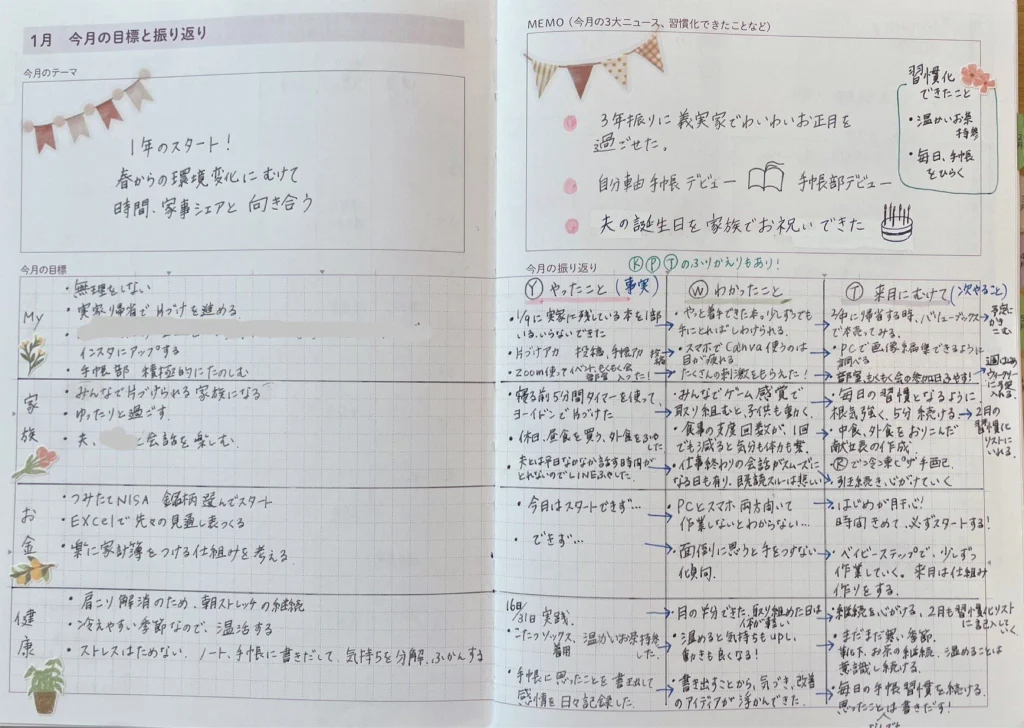 1月 今月の目標と振り返り
今月のテーマ
1年のスタート!
春からの環境変化にむけて
時間、家事シェアと 向き合う
今月の目標
My
・無理をしない
・実家帰省で片づけを進める
インスタにアップする
・手帳部 積極的にたのしむ
家族
・みんなで片づけられる家族になる
・ゆったりと過ごす.
・夫、
と会話を楽しむ.
お金
・つみたてNISA 銘柄選んでスタート
・EXCELで先々の見通し表つくる
・楽に家計簿をつける仕組みを考える
健康
・肩こり解消のため、朝ストレッチの継続
・冷えやすい季節なので、温活する
・ストレスはためない. ノート、手帳に書きだして、気持ちを分解、ふかんする
MEMO(今月の3大ニュース、習慣化できたことなど)
3年振りに義実家でわいわいお正月を
過ごせた。
自分軸手帳デビュー 手帳部デビュー
夫の誕生日を家族でお祝いできた
習慣化
できたこと
・温かいお茶
持参
・毎日、手帳
をひらく
今月の振り返り
K P T のふりかえりもあり!
Y やったこと (事実)
・1/9に実家に残している本を1部
いる、いらないできた
・片づけアカ 投稿、手帳アカ 投稿
・ZOOM使ってイベント、もくもく会
部室 入った!
・寝る前5分間タイマーを使って、
ヨーイドンで片づけた
・休日、昼食を買う、外食をふやした
・夫とは平日なかなか話す時間が
とれないのでLINEふやした.
・今月はスタートできず…
・できず…
16日/31日 実践
・こたつソックス、温かいお茶持参
着用 した.
・手帳に思ったことを書き出して
感情を日々記録した.
W わかったこと
・やっと着手できた本。少しずつでも
手にとればしわけられる.
・スマホでCanva使うのは
目が疲れる
・たくさんの刺激をもらえた!
・みんなでゲーム感覚で
取り組むと、子供も動く.
・食事の支度回数が、1回
でも減ると気分も体力も楽.
・仕事終わりの会話がスムーズに
なる日も有り、既読スルーは悲しい
・PCとスマホ両方向いて
作業しないとわからない…
・面倒に思うと手をつけない
傾向.
・月の半分できた。取り組めた日は
体が軽い
・温めると気持ちもup!
動きも良くなる!
・書き出すことから、気づき、改善
のアイディアが浮かんできた.
T 来月にむけて (次やること)
・3月に帰省する時、バリューブックス
で本売ってみる.
予定にかきこむ
・PCで画像編集できるように
調べる
・部室、もくもく会の参加日ふやす!
ウィークリーに予定入れる.
・毎日の習慣となるように
根気強く、5分続ける
2月の習慣化リストにいれる.
・中食、外食をおりこんだ
献立表の作成.
引き続き、心がけていく
・はじめが肝心!
時間きめて、必ずスタートする!
・ベイビーステップで、少しずつ
作業していく。来月は仕組み
作りをする.
・継続を心がける、2月も習慣化リスト
に記入していく.
・まだまだ寒い季節.
靴下、お茶の継続. 温めることは
意識し続ける.
・毎日の手帳習慣を続ける.
思ったことは書きだす!